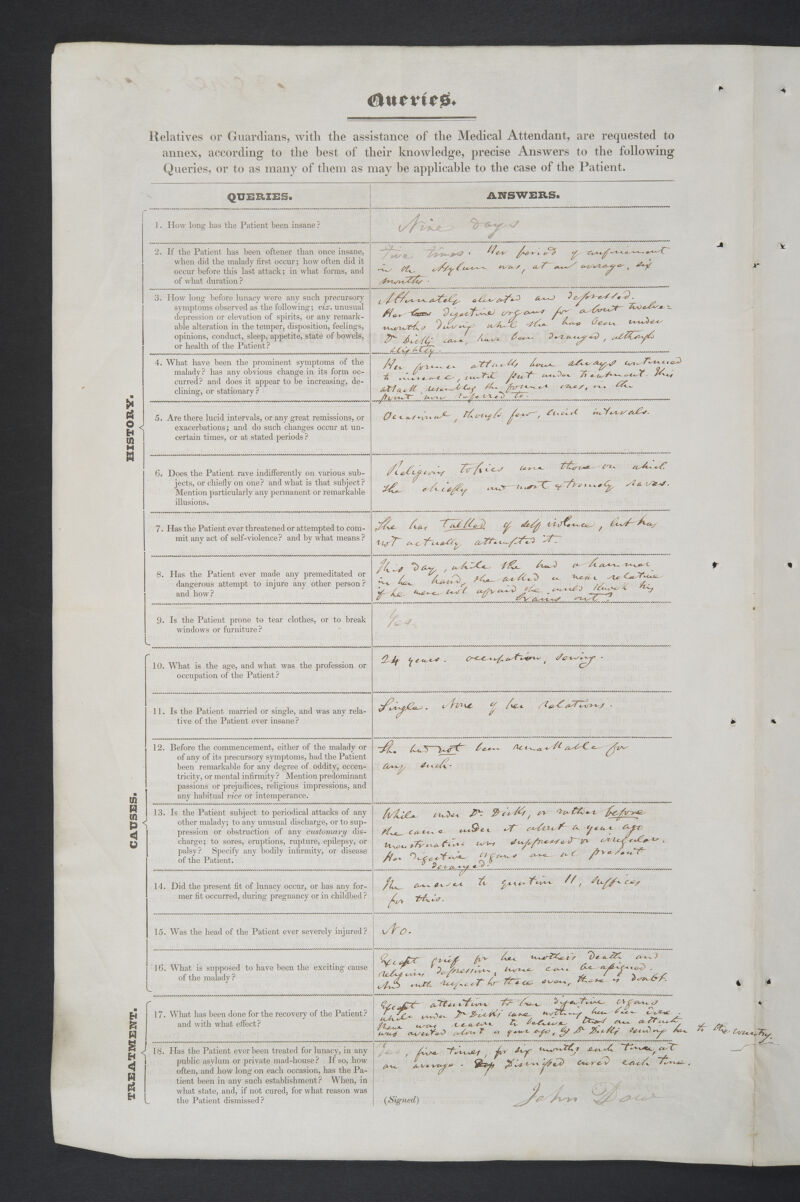 Queries.
Relatives or Guardians, with the assistance of the Medical Attendant, are requested to
annex, according to the best of their knowledge, precise Answers to the following
Queries, or to as many of them as may be applicable to the case of the Patient.
QUERIES.
ANSWERS.
HISTORY.
1. How long has the Patient been insane?
Nine days
2. If the Patient has been oftener than once insane,
when did the malady first occur; how often did it
occur before this last attack; in what forms, and
of what duration?
Five times. Her period of confinement
in the Asylum was, at an average, six
months.
3. How long before lunacy were any such precursory
symptoms observed as the following; viz. unusual
depression or elevation of spirits, or any remark-
able alteration in the temper, disposition, feelings,
opinions, conduct, sleep, appetite, state of bowels,
or health of the Patient?
Alternately elevated and depressed.
Her digestive organs for about twelve
months during which she has been under
Dr Dick's care, have been deranged, although
slightly.
4. What have been the prominent symptoms of the
malady? has any obvious change in its form oc-
curred? and does it appear to be increasing, de-
clining, or stationary?
Her former attacks have always continued
to increase, until put under treatment. This
attack resembles the former ones, on the
point now referred to.
5. Are there lucid intervals, or any great remissions, or
exacerbations; and do such changes occur at un-
certain times, or at stated periods?
Occasional, though few, lucid intervals.
6. Does the Patient rave indifferently on various sub-
jects, or chiefly on one? and what is that subject?
Mention particularly any permanent or remarkable
illusions.
Religious topics are those on which
she chiefly and most extremely raves.
7. Has the Patient ever threatened or attempted to com-
mit any act of self-violence? and by what means?
She has talked of self violence, but has
not actually attempted it.
8. Has the Patient ever made any premeditated or
dangerous attempt to injure any other person?
and how?
This day, while she had a hammer
in her hand, she asked a near relative
if he were not afraid she would knock his
brains out?
9. Is the Patient prone to tear clothes, or to break
windows or furniture?
Yes.
CAUSES.
10. What is the age, and what was the profession or
occupation of the Patient?
24 years. occupation, sewing.
11. Is the Patient married or single, and was any rela-
tive of the Patient ever insane?
Single. None of her relations.
12. Before the commencement, either of the malady or
of any of its precursory symptoms, had the Patient
been remarkable for any degree of oddity, eccen-
tricity, or mental infirmity? Mention predominant
passions or prejudices, religious impressions, and
any habitual vice or intemperance.
She had not been remarkable for
any such.
13. Is the Patient subject to periodical attacks of any
other malady; to any unusual discharge, or to sup-
pression or obstruction of any customary dis-
charge; to sores, eruptions, rupture, epilepsy, or
palsy? Specify any bodily infirmity, or disease
of the Patient.
While under Dr Dick's, or rather before
she came under it about a year ago
menstruation was suppressed or irregular.
Her digestive organs are at present
deranged.
14. Did the present fit of lunacy occur, or has any for-
mer fit occurred, during pregnancy or in childbed?
The answer to question 11, suffices
for this.
15. Was the head of the Patient ever severely injured?
No.
16. What is supposed to have been the exciting cause
of the malady?
Except grief for her mother's death and
religious depression, none can be assigned.
And with respect to these even, there is doubt.
TREATMENT.
17. What has been done for the recovery of the Patient?
and with what effect?
Except attention to her digestive organs
while under Dr Dick's care nothing has been done.
There was reason to believe that an attack
was averted about a year ago, by Dr Dick's sending her to the country.
18. Has the Patient ever been treated for lunacy, in any
public asylum or private mad-house? If so, how
often, and how long on each occasion, has the Pa-
tient been in any such establishment? When, in
what state, and, if not cured, for what reason was
the Patient dismissed?
Yes, five times, for six months each time, at
an average. Dismissed cured each time.
(Signed) John Dow